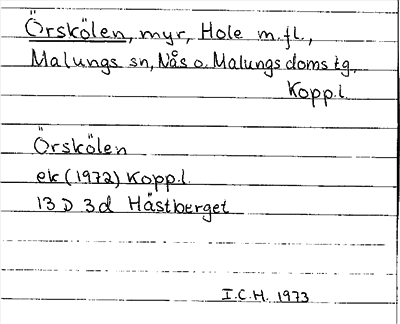 Örskölen, myr, Hole m.fl.,
Malungs sn, Nås o. Malungs doms tg,
Kopp.l.
Örskölen
ek (1972) Kopp.l.
13 D 3d Hästberget
I.C.H. 1973